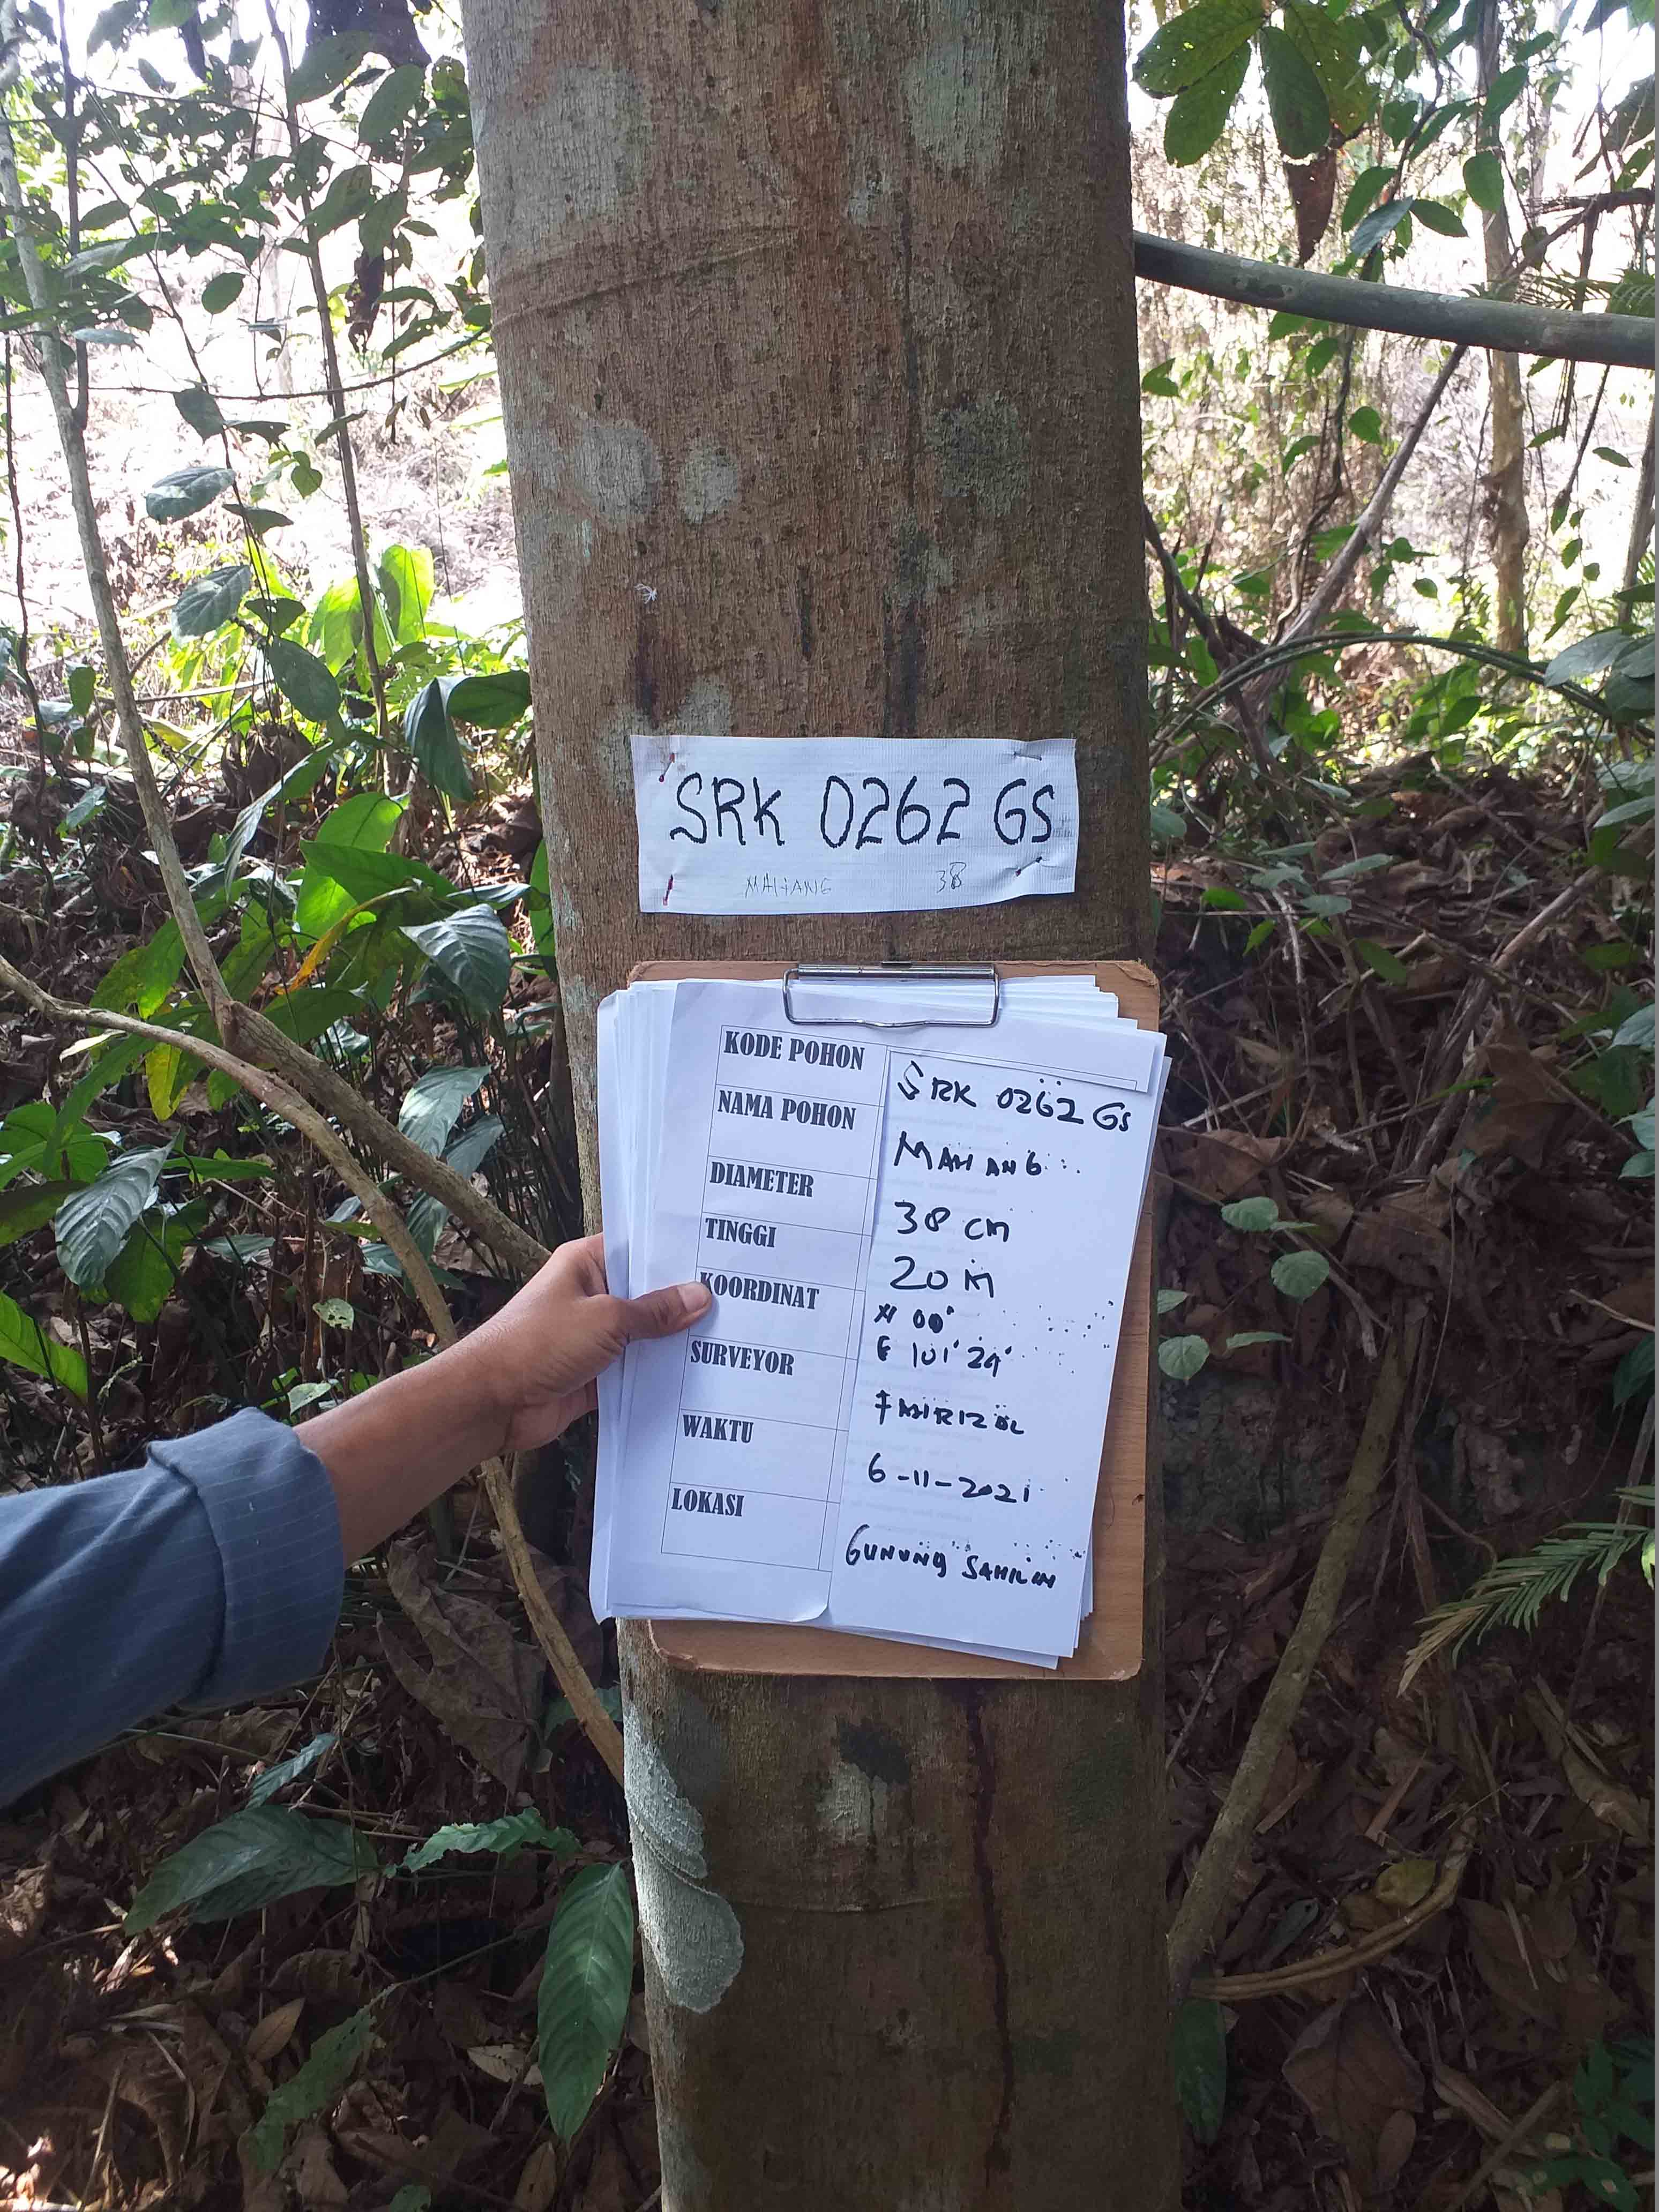 SRK 0262 GS
MAHANG 38
KODE POHON SRK 0262 GS
NAMA POHON MAHANG
DIAMETER 38 cm
TINGGI 20 m
KOORDINAT N 00°
E 101° 29'
SURVEYOR
WAKTU 6-11-2021
LOKASI GUNUNG SAHILAN